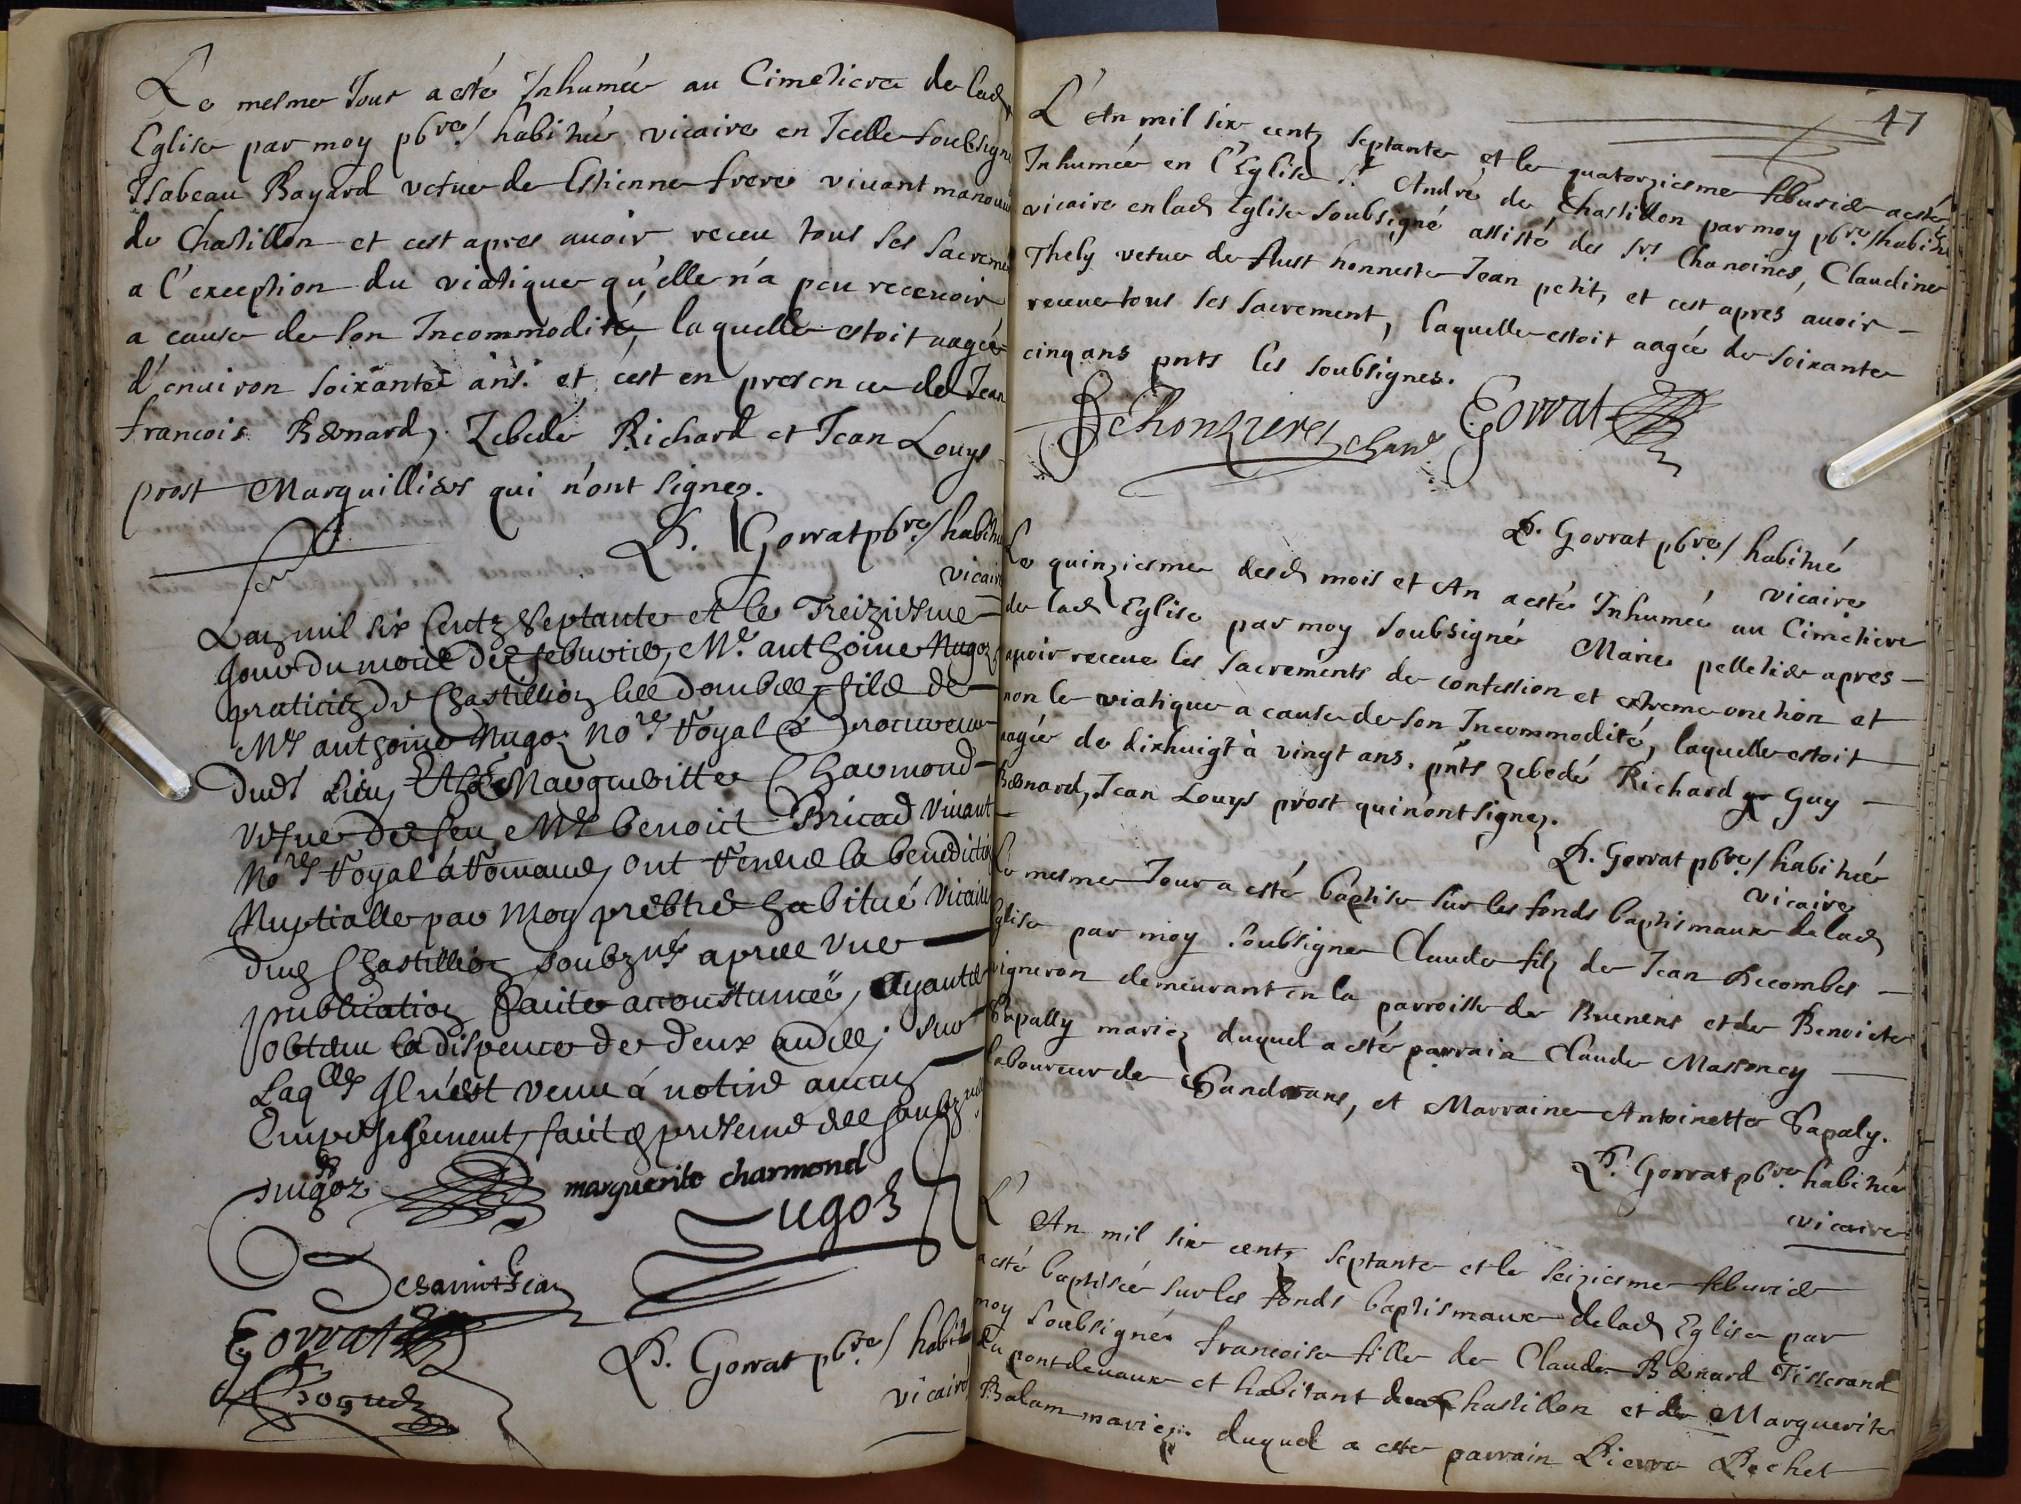 Le mesme Jour a esté Inhumée au Cimetiere de lad
Eglise par moy pbre / habitué vicaire en Icelle soubsigné
Isabeau Bayard vefue de Estienne frere viuant manouu
de Chastillon et cest apres auoir receu tous ses sacremen
a l'exception du viatique qu'elle n'a peu receuoir
a cause de son Incommodité, laquelle estoit aagée
d'enuiron soixante ans. et c'est en presence de Jean
francois Bernard, Zebedé Richard et Jean Louys
prost Marguilliers qui n'ont signez.
P. Gorrat pbre / habitué
vicaire
Lan mil six Centz Septante et le Treiziesme
Jour du mois de feburier, Me. anthoine Nugoz
praticien de Chastillion les dombes, filz de
Me anthoine Nugoz Nore Royal & procureur
dud Lieu, Margueritte Charmond
vefue de feu Me benoict Bricod viuant
Nore Royal à Romans, ont Receu la benedictio
Nuptialle par Moy prebtre habitué vicaire
dud Chastillion soubzné apres vne
publication faite accoustumée, Ayantz
obtenu la dispence de deux audes, sur
Laqlle Il n'est venu á notice aucun
Empeschement, faict & presence des soubznes
Nugoz marguerite charmond
Nugoz
Desainctjean
Gorrat
P. Gorrat pbre / habitué
vicaire
47
L'An mil six centz septante et le quatorziesme feburier a esté
Inhumée en l'Eglise St André de Chastillon par moy pbre / habitué
vicaire en lad Eglise soubsigné assisté des srs Chanoines, Claudine
Thely vefue de flust honneste Jean petit, et cest apres auoir
receue tous ses sacrement, laquelle estoit aagée de soixante
cinq ans pnts les soubsignes.
Dechonzieres chane Gorrat
P. Gorrat pbre / habitué
vicaire
Le quinziesme desd mois et An a esté Inhumée au Cimetiere
de lad Eglise par moy soubsigné Marie pelletier apres
auoir receue les sacrements de confession et extreme onction et
non le viatique a cause de son Incommodité, laquelle estoit
aagée de dixhuigt à vingt ans. pnts Zebedé Richard Guy
Bernard, Jean Louys prost qui nont signez.
P. Gorrat pbre / habitué
vicaire
Le mesme Jour a esté baptisé sur les fonds baptismaux de lad
Eglise par moy soubsigne Claude filz de Jean Decombes
vigneron demeurant en la parroisse de Buenens et de Benoiste
Papally mariez duquel a esté parrain Claude Massoney
laboureur de Sandrans, et Marraine Antoinette Papaly.
P. Gorrat pbre habitué
vicaire
L'An mil six centz septante et le seiziesme feburier
a esté baptisée sur les fonds baptismaux de lad Eglise par
moy soubsigné francoise fille de Claude Bernard Tisserand
du pontdevaux et habitant de Chastillon et de Marguerite
Balam mariez. duquel a esté parrain Pierre Pechet